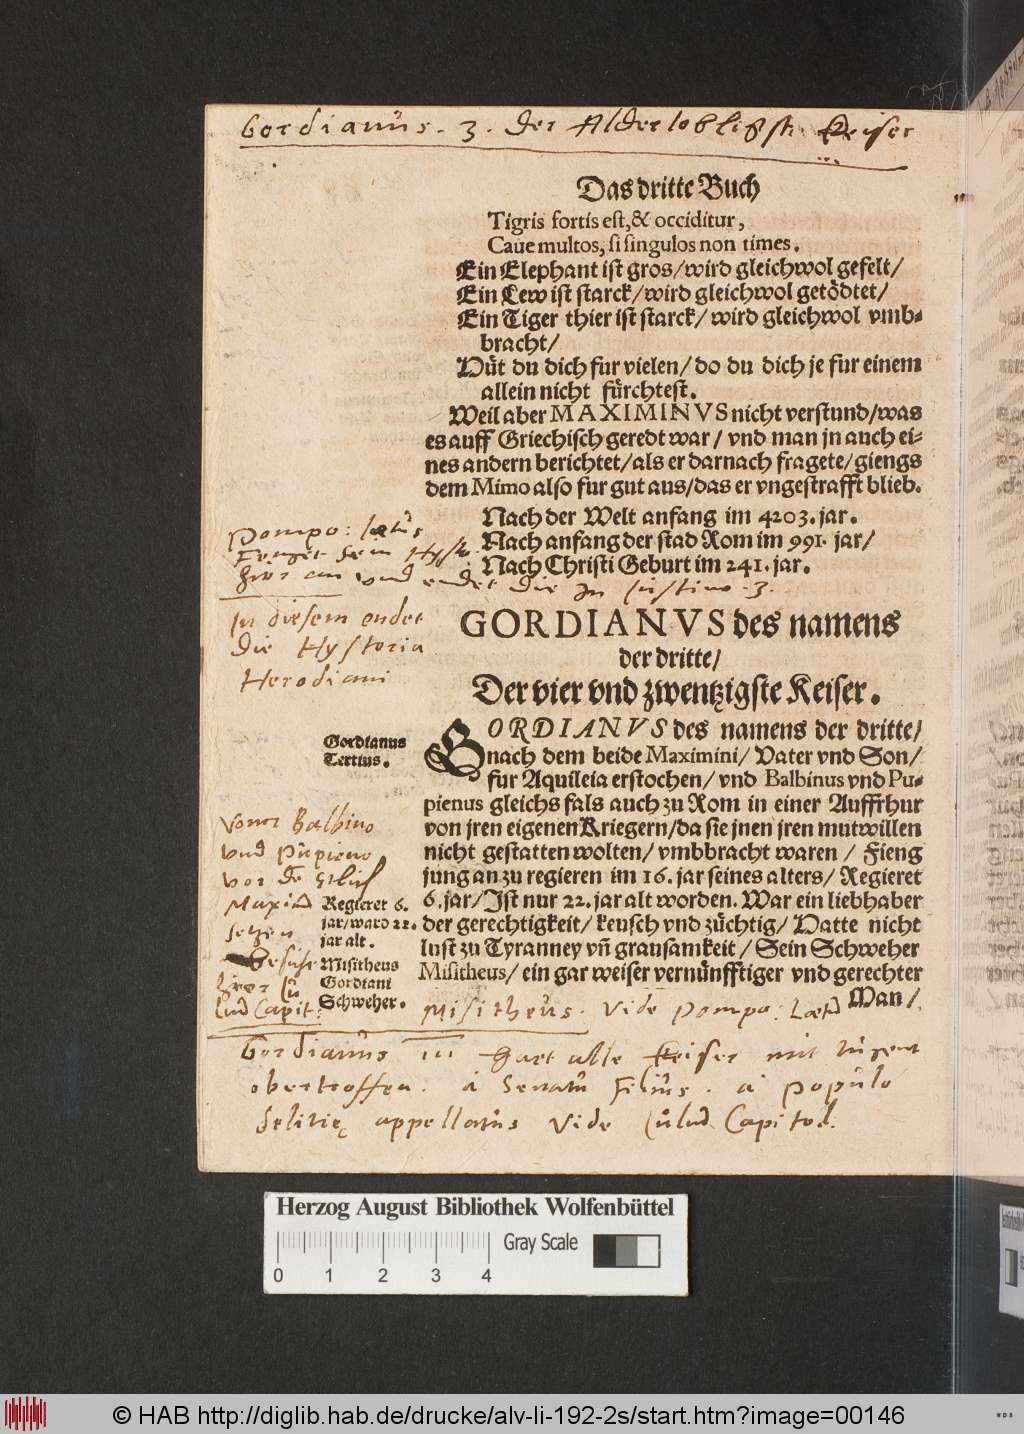 Gordianus. 3. der Alderlobligst Keiser
Das dritte Buch
Tigris fortis est, & occiditur,
Caue multos, si singulos non times.
Ein Elephant ist gros/ wird gleichwol gefelt/
Ein Lew ist starck/ wird gleichwol getödtet/
Ein Tiger thier ist starck/ wird gleichwol vmb-
bracht/
Hüt du dich fur vielen/ do du dich je fur einem
allein nicht fürchtest.
Weil aber MAXIMINVS nicht verstund/ was
es auff Griechisch geredt war/ vnd man jn auch ei-
nes andern berichtet/ als er darnach fragete/ giengs
dem Mimo also fur gut aus/ das er vngestrafft blieb.
Nach der Welt anfang im 4203. jar.
Nach anfang der stad Rom im 991. jar/
Nach Christi Geburt im 241. jar.
Pompo: lætus
Fenget sein Hysto.
hier an vnd endet die In Justino. 3.
In diesem endet
Die Hystoria
Herodiani
GORDIANVS des namens
der dritte/
Der vier vnd zwentzigste Keiser.
Gordianus
Tertius.
GORDIANVS des namens der dritte/
nach dem beide Maximini/ Vater vnd Son/
fur Aquileia erstochen/ vnd Balbinus vnd Pu-
pienus gleichs fals auch zu Rom in einer Auffrhur
von jren eigenen Kriegern/ da sie jnen jren mutwillen
nicht gestatten wolten/ vmbbracht waren/ Fieng
jung an zu regieren im 16. jar seines alters/ Regieret
6. jar/ Ist nur 22. jar alt worden. War ein liebhaber
der gerechtigkeit/ keusch vnd züchtig/ Hatte nicht
lust zu Tyranney vñ grausamkeit/ Sein Schweher
Misitheus/ ein gar weiser vernünfftiger vnd gerechter
Man/
Vonn Balbino
vnd Pupieno
Regieret 6.
jar/ ward 22.
jar alt.
Misitheus
Gordiani
Schweher.
Misitheus. Vide Pompo: Læt
Gordianus III hatt alle Keiser mit tugent
obertroffen. à Senatu Filius. à populo
delitię appellatus Vide Capitol.
Herzog August Bibliothek Wolfenbüttel
Gray Scale
0 1 2 3 4
© HAB http://diglib.hab.de/drucke/alv-li-192-2s/start.htm?image=00146